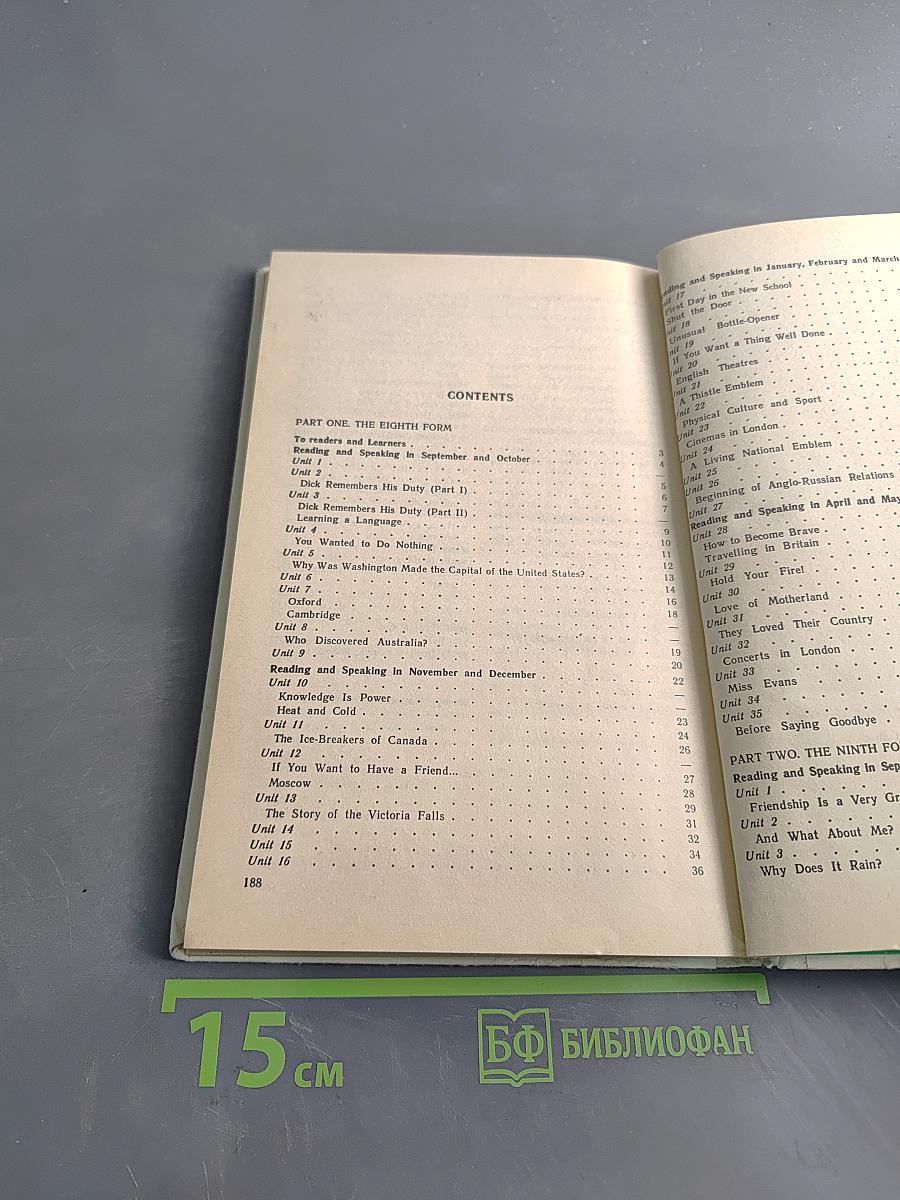 CONTENTS
PART ONE. THE EIGHTH FORM
To readers and Learners . . . 3
Reading and Speaking in September and October . . . 4
Unit 1 . . . —
Unit 2 . . . 5
Dick Remembers His Duty (Part I) . . . 6
Unit 3 . . . 7
Dick Remembers His Duty (Part II) . . . —
Learning a Language . . . 9
Unit 4 . . . 10
You Wanted to Do Nothing . . . 11
Unit 5 . . . 12
Why Was Washington Made the Capital of the United States? . . . 13
Unit 6 . . . 14
Unit 7 . . . 16
Oxford . . . 18
Cambridge . . . —
Unit 8 . . . —
Who Discovered Australia? . . . 19
Unit 9 . . . 20
Reading and Speaking in November and December . . . 22
Unit 10 . . . —
Knowledge Is Power . . . —
Heat and Cold . . . 23
Unit 11 . . . 24
The Ice-Breakers of Canada . . . 26
Unit 12 . . . —
If You Want to Have a Friend... . . . 27
Moscow . . . 28
Unit 13 . . . 29
The Story of the Victoria Falls . . . 31
Unit 14 . . . 32
Unit 15 . . . 34
Unit 16 . . . 36
188
and Speaking in January, February and March
17
First Day in the New School
Shut the Door
18
Unusual Bottle-Opener
19
If You Want a Thing Well Done
20
English Theatres
21
A Thistle Emblem
22
Physical Culture and Sport
Unit 23
Cinemas in London
Unit 24
A Living National Emblem
Unit 25
Unit 26
Beginning of Anglo-Russian Relations
Unit 27
Reading and Speaking in April and May
Unit 28
How to Become Brave
Travelling in Britain
Unit 29
Hold Your Fire!
Unit 30
Love of Motherland
Unit 31
They Loved Their Country
Unit 32
Concerts in London
Unit 33
Miss Evans
Unit 34
Unit 35
Before Saying Goodbye
PART TWO. THE NINTH FO
Reading and Speaking in Sep
Unit 1
Friendship Is a Very Gr
Unit 2
And What About Me?
Unit 3
Why Does It Rain?
15 см
БФ БИБЛИОФАН